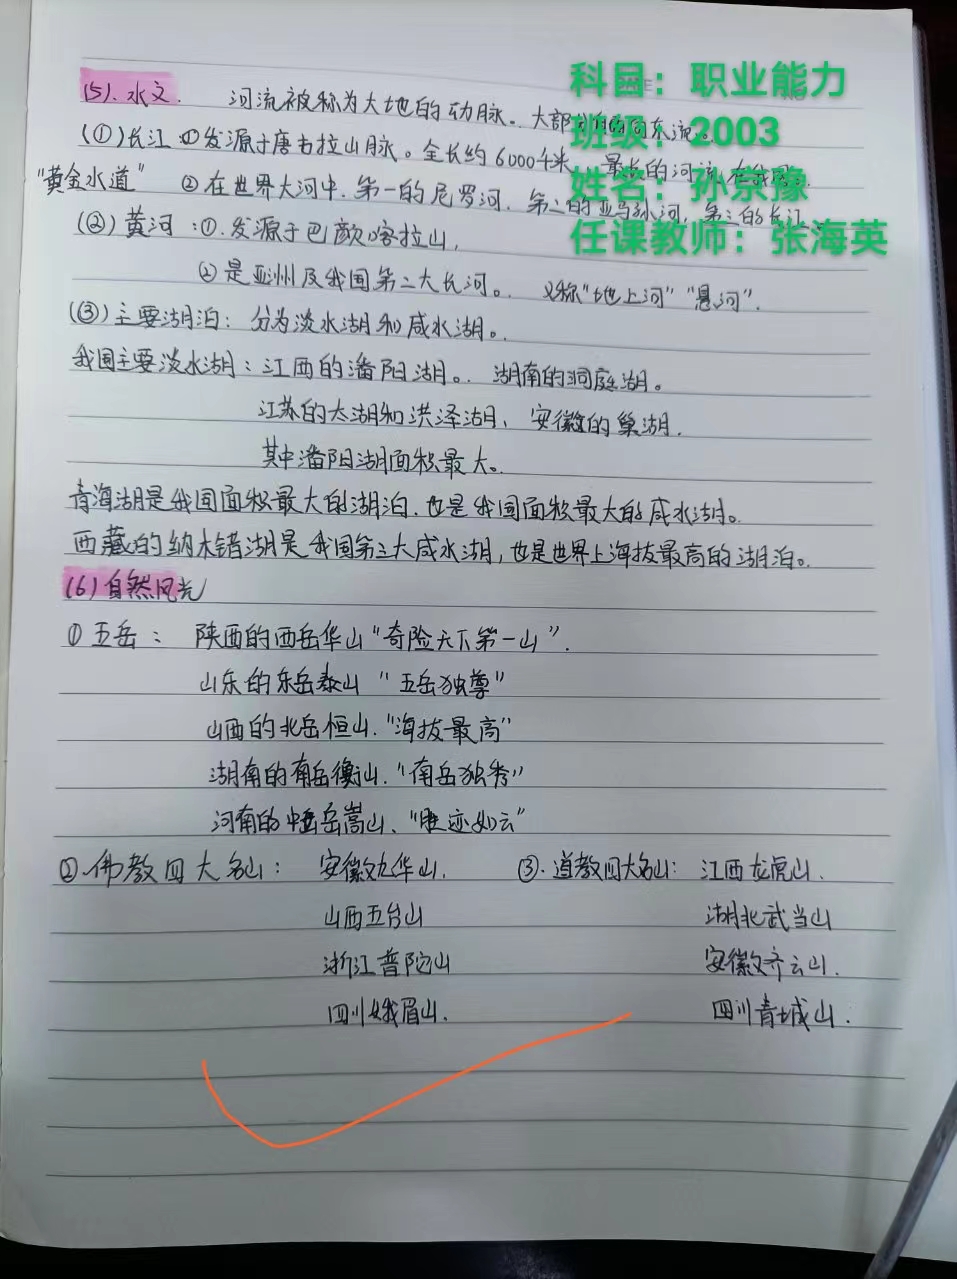 科目：职业能力
班级：2003
姓名：孙京豫
任课教师：张海英
(5).水文. 河流被称为大地的动脉。大部 向东流。
(①)长江 ①发源于唐古拉山脉。全长约6000千米 最长的河流
"黄金水道" ②在世界大河中.第一的尼罗河.第二的亚马孙河,第三的长江
(②)黄河:①.发源于巴颜喀拉山,
②是亚洲及我国第二大长河。. 又称"地上河""悬河".
(③)主要湖泊:分为淡水湖和咸水湖。
我国主要淡水湖:江西的潘阳湖。. 湖南的洞庭湖。
江苏的太湖和洪泽湖、安徽的巢湖.
其中潘阳湖面积最大。
青海湖是我国面积最大的湖泊.也是我国面积最大的咸水湖。
西藏的纳木错湖是我国第三大咸水湖,也是世界上海拔最高的湖泊。
(6)自然风光
①五岳: 陕西的西岳华山"奇险天下第一山".
山东的东岳泰山"五岳独尊"
山西的北岳恒山."海拔最高"
湖南的南岳衡山."南岳独秀"
河南的中岳嵩山、"胜迹如云"
②.佛教四大名山: 安徽九华山. ③.道教四大名山: 江西龙虎山.
山西五台山 湖北武当山
浙江普陀山 安徽齐云山.
四川峨眉山. 四川青城山.